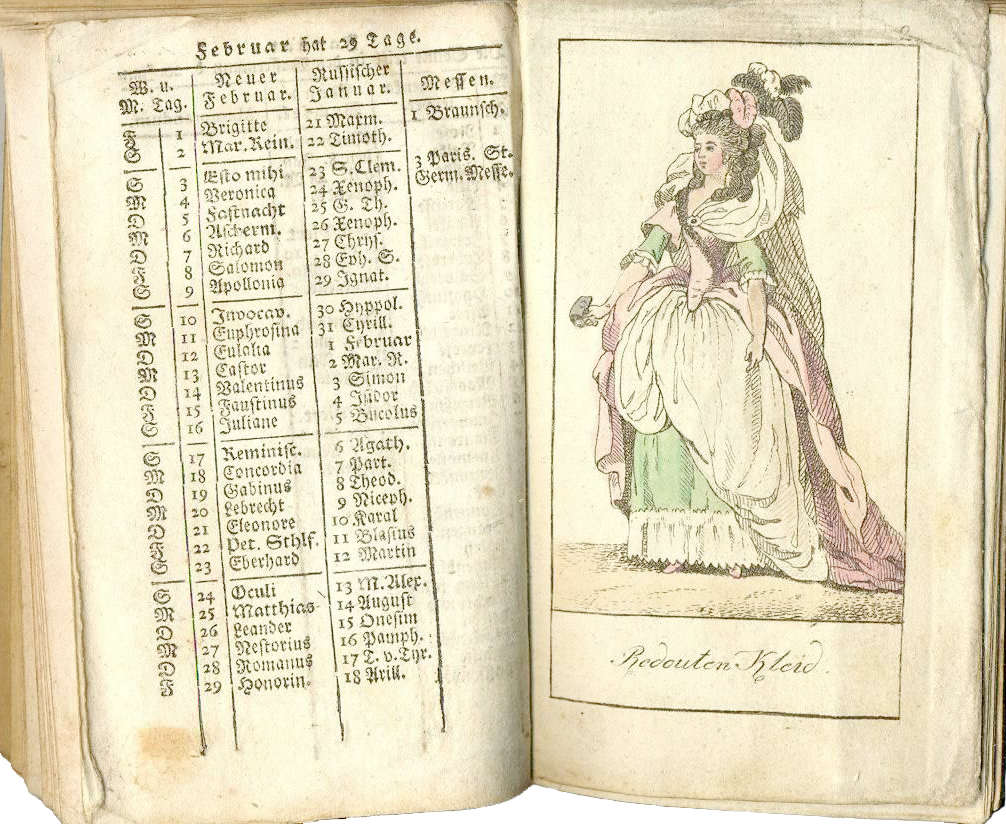 Februar hat 29 Tage.
W. u. M. Tag. Neuer Februar. Russischer Januar. Messen.
F 1 Brigitte 21 Maxm. 1 Braunsch.
S 2 Mar. Rein. 22 Timoth.
S 3 Esto mihi 23 S. Clem. 3 Paris. St.
M 4 Veronica 24 Xenoph. Germ. Messe.
D 5 Fastnacht 25 G. Th.
M 6 Ascherm. 26 Xenoph.
D 7 Richard 27 Chrys.
F 8 Salomon 28 Eph. S.
S 9 Apollonia 29 Ignat.
S 10 Invocav. 30 Hyppol.
M 11 Euphrosina 31 Cyrill.
D 12 Eulalia 1 Februar
M 13 Castor 2 Mar. R.
D 14 Valentinus 3 Simon
F 15 Faustinus 4 Isidor
S 16 Juliane 5 Bucolus
S 17 Reminisc. 6 Agath.
M 18 Concordia 7 Part.
D 19 Gabinus 8 Theod.
M 20 Lebrecht 9 Niceph.
D 21 Eleonore 10 Karal
F 22 Pet. Sthlf. 11 Blasius
S 23 Eberhard 12 Martin
S 24 Oculi 13 M. Alex.
M 25 Matthias 14 August
D 26 Leander 15 Onesim
M 27 Nestorius 16 Pamph.
D 28 Romanus 17 T. v. Tyr.
F 29 Honorin. 18 Arill.
Redouten Kleid.